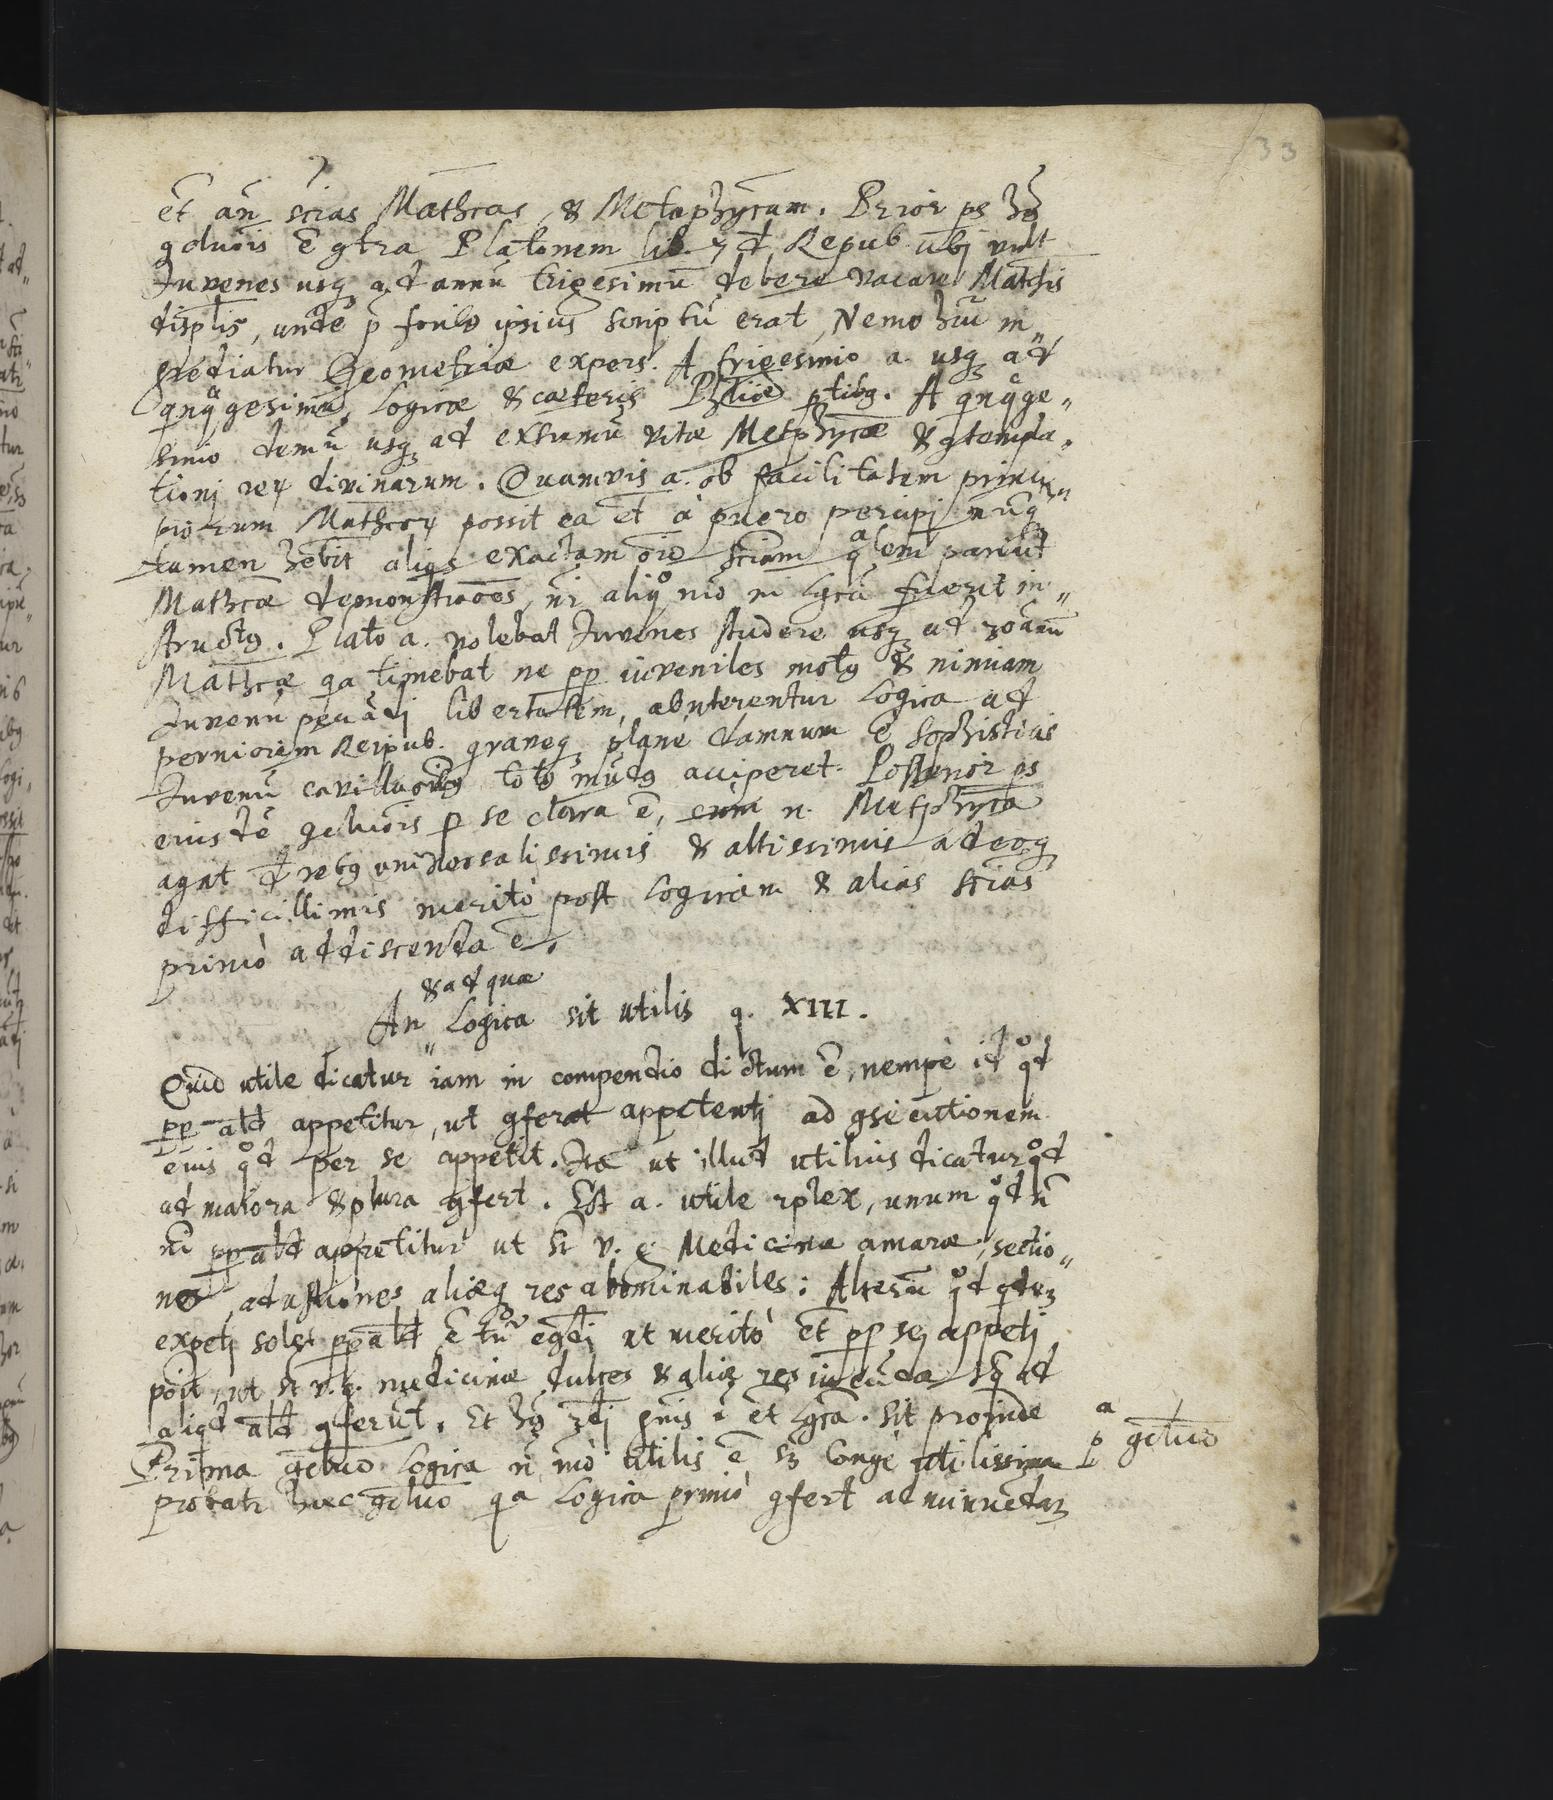 33
et̄ an̄ scias Mathcas, & Metaphycam. Prior ps hꝰ
gclunis ē gtra Platonem lib. 7 d Repub. ubj vult
Juvenes usq ad annū trigesimū debere vacare Mathis
displis, unde p foribꝰ ipsius scriptū erat, Nemo huc in„
grediatur Geometriæ expers. A trigesimo a. usq ad
qnqagesimū, Logicæ & cæteris Phiæ ptibꝰ. A qnqage„
simo demū usq ad extremū vitæ Metphycæ & gtempla„
tionj reꝝ divinarum. Quamvis a. ob facilitatem princi„
piorum Mathcoꝝ possit ea et̄ à puero percipj nūq
tamen hēbit aliqs exactam oīo sciam qalem pariūt
Mathcæ demonstraōes, ni aliqo mō in Lgca fuerit in„
structꝰ. Plato a. volebat Juvenes studere usq ad 30 annū
Mathcæ qa timebat ne pp iuveniles motꝰ & nimiam
Juvenū peccādj libertatem, abuterentur Logica ad
perniciem Reipub. graveq planè damnum è Sophisticis
Juvenū cavillaoibꝰ toto mūdꝰ acciperet. Posterior ps
eiusdē gclunis p se clara ē, cum n. Metphyca
agat d rebꝰ universalissimis & altissimis adeoq
difficillimis meritò post Logicam & alias scias
primò addiscenda ē.
& ad quæ
An „ Logica sit utilis q. XIII.
Quid utile dicatur iam in compendio dictum ē, nempè id qod
pp aliud appetitur, ut gferat appetentj ad gsecutionem
eius qod per se appetit. Ita ut illud utilius dicatur qod
ad maiora & plura gfert. Est a. utile 2plex, unum qod n̄
ni pp aliud appetitur ut st v. g. Medicinæ amaræ, sectio„
nes, adustiones aliæq res abominabiles: Alterū qod qdē
expetj solet pp aliud ē tn̄ egdj ut meritò et̄ pp se appetj
posit, ut st v. g. medicinæ dulces & aliæ res iucūdæ sq ad
aliqd aliud gferūt. Et hꝰ gnis ē et̄ Lgca. Sit proinde
Prima gcluo Logica n̄ mò utilis ē sꝫ longè utilissima
probatr hæc gcluo qa Logica primò gfert ad
a
p gcluo